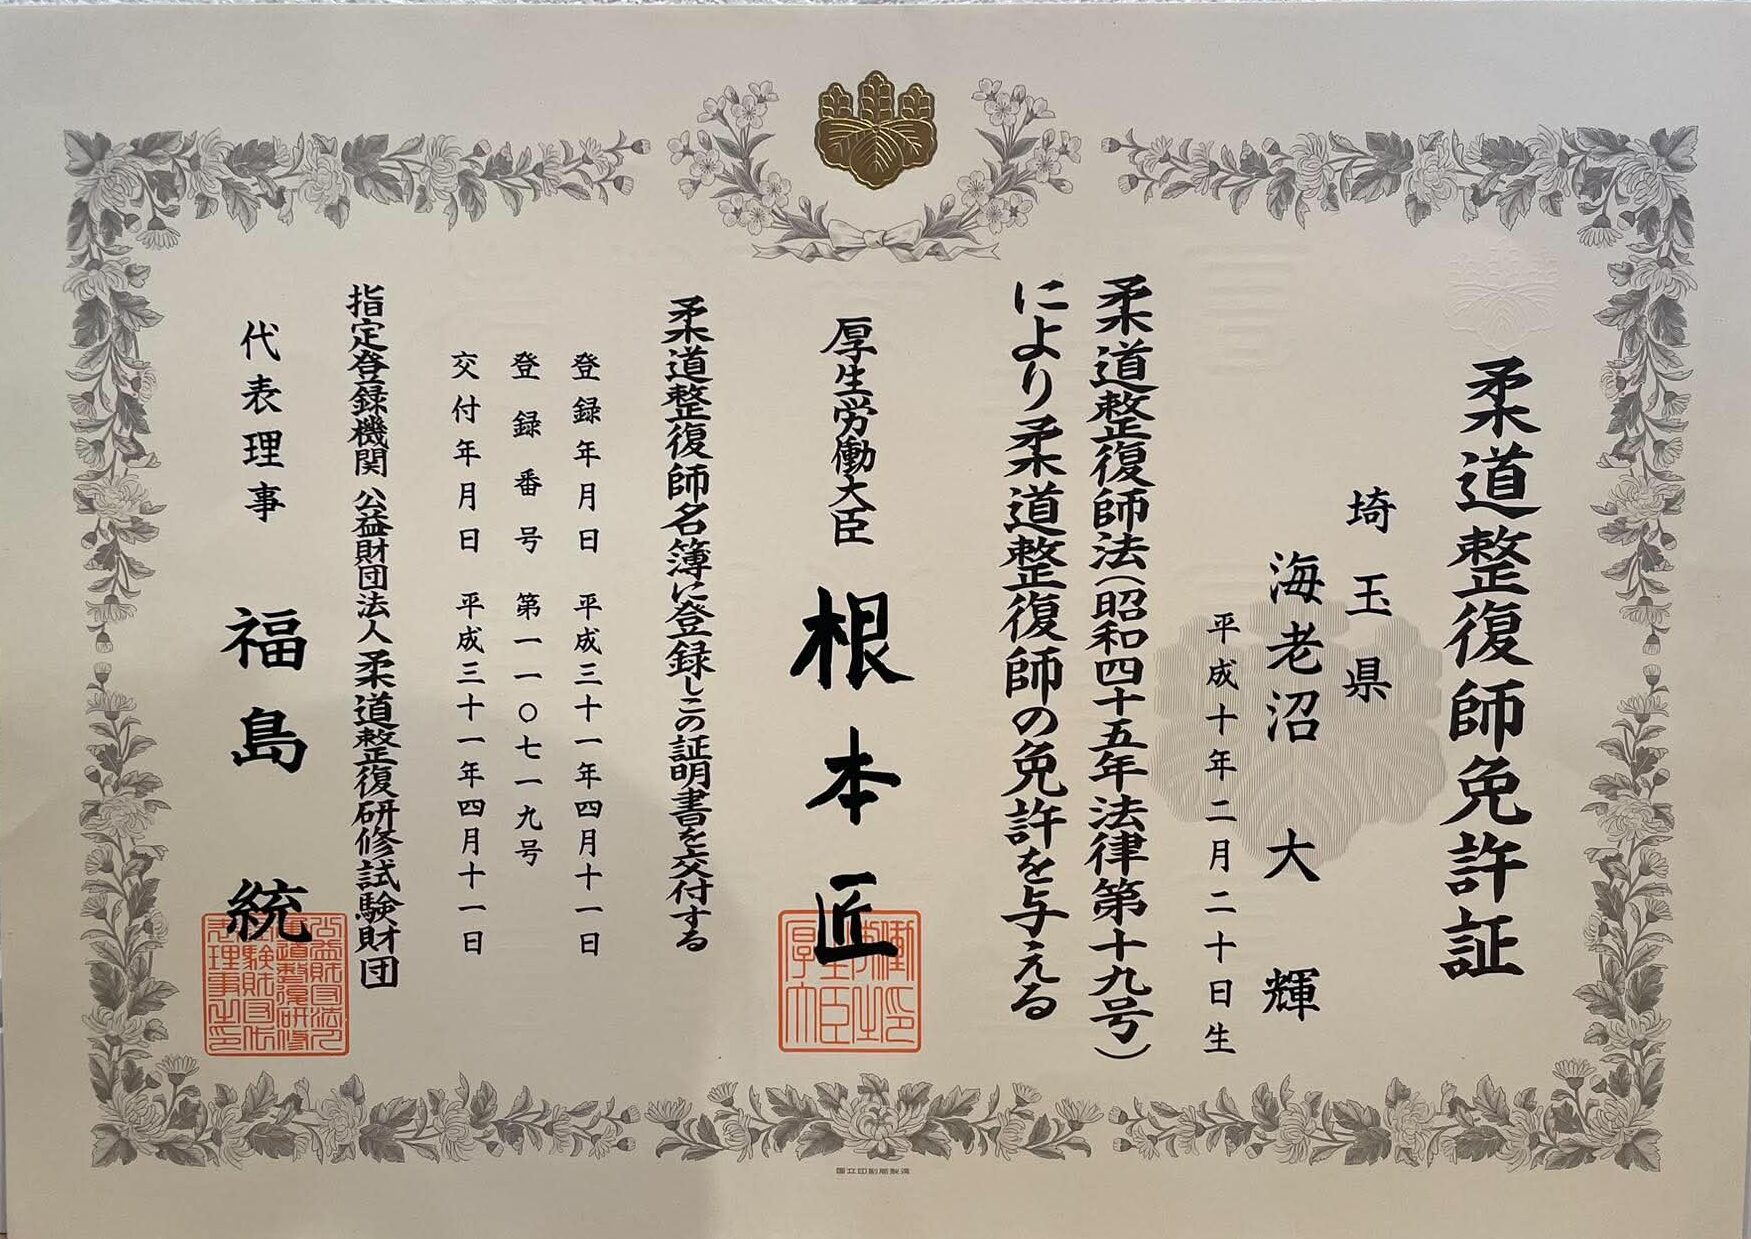 柔道整復師免許証
埼玉県
海老沼大輝
平成十年二月二十日生
柔道整復師法(昭和四十五年法律第十九号)
により柔道整復師の免許を与える
厚生労働大臣 根本匠
柔道整復師名簿に登録しこの証明書を交付する
登録年月日 平成三十一年四月十一日
登録番号 第一一〇七一九号
交付年月日 平成三十一年四月十一日
指定登録機関 公益財団法人柔道整復研修試験財団
代表理事 福島統
国立印刷局製造